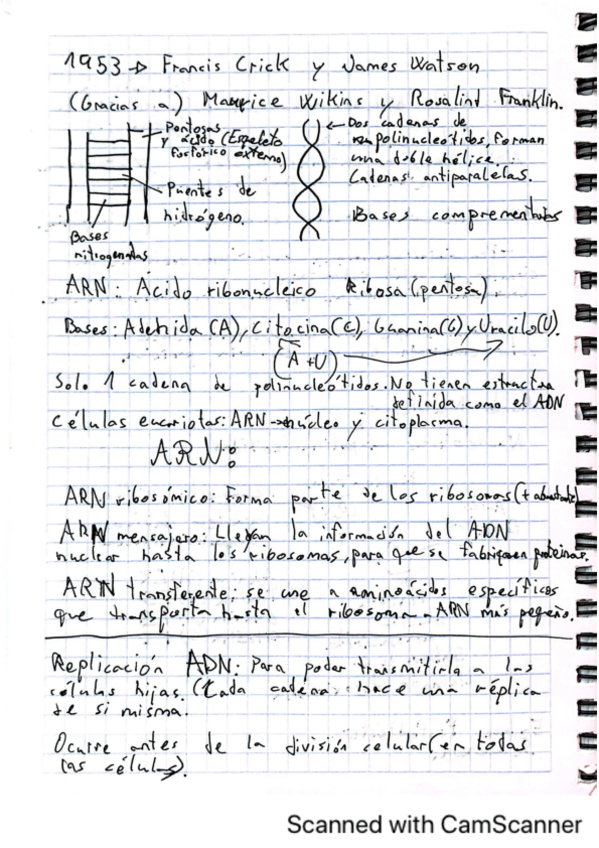 1953 → Francis Crick y James Watson
(Gracias a) Maurice Wikins y Rosalind Franklin.
Pentosas
y ácido (Esqueleto
fosfórico externo)
Puentes de
hidrógeno.
Bases
nitrogenadas
← Dos cadenas de
polinucleótidos, forman
una doble hélice.
Cadenas antiparalelas.
Bases comprementarias
ARN: Ácido ribonucleico Ribosa (pentosa).
Bases: Adenida (A), Citocina (C), Guanina (G) y Uracilo (U).
(A+U)
Solo 1 cadena de polinucleótidos. No tienen estructura
definida como el ADN
Células eucariotas: ARN → núcleo y citoplasma.
ARN:
ARN ribosómico: Forma parte de los ribosomas (+ abundante)
ARN mensajero: Llevan la información del ADN
nuclear hasta los ribosomas, para que se fabriquen proteínas.
ARN transferente: se une a aminoácidos específicos
que transporta hasta el ribosoma. ARN más pequeño.
Replicación ADN: Para poder transmitirla a las
células hijas. (Cada cadena hace una réplica
de si misma.
Ocurre antes de la división celular (en todas
las células).
Scanned with CamScanner